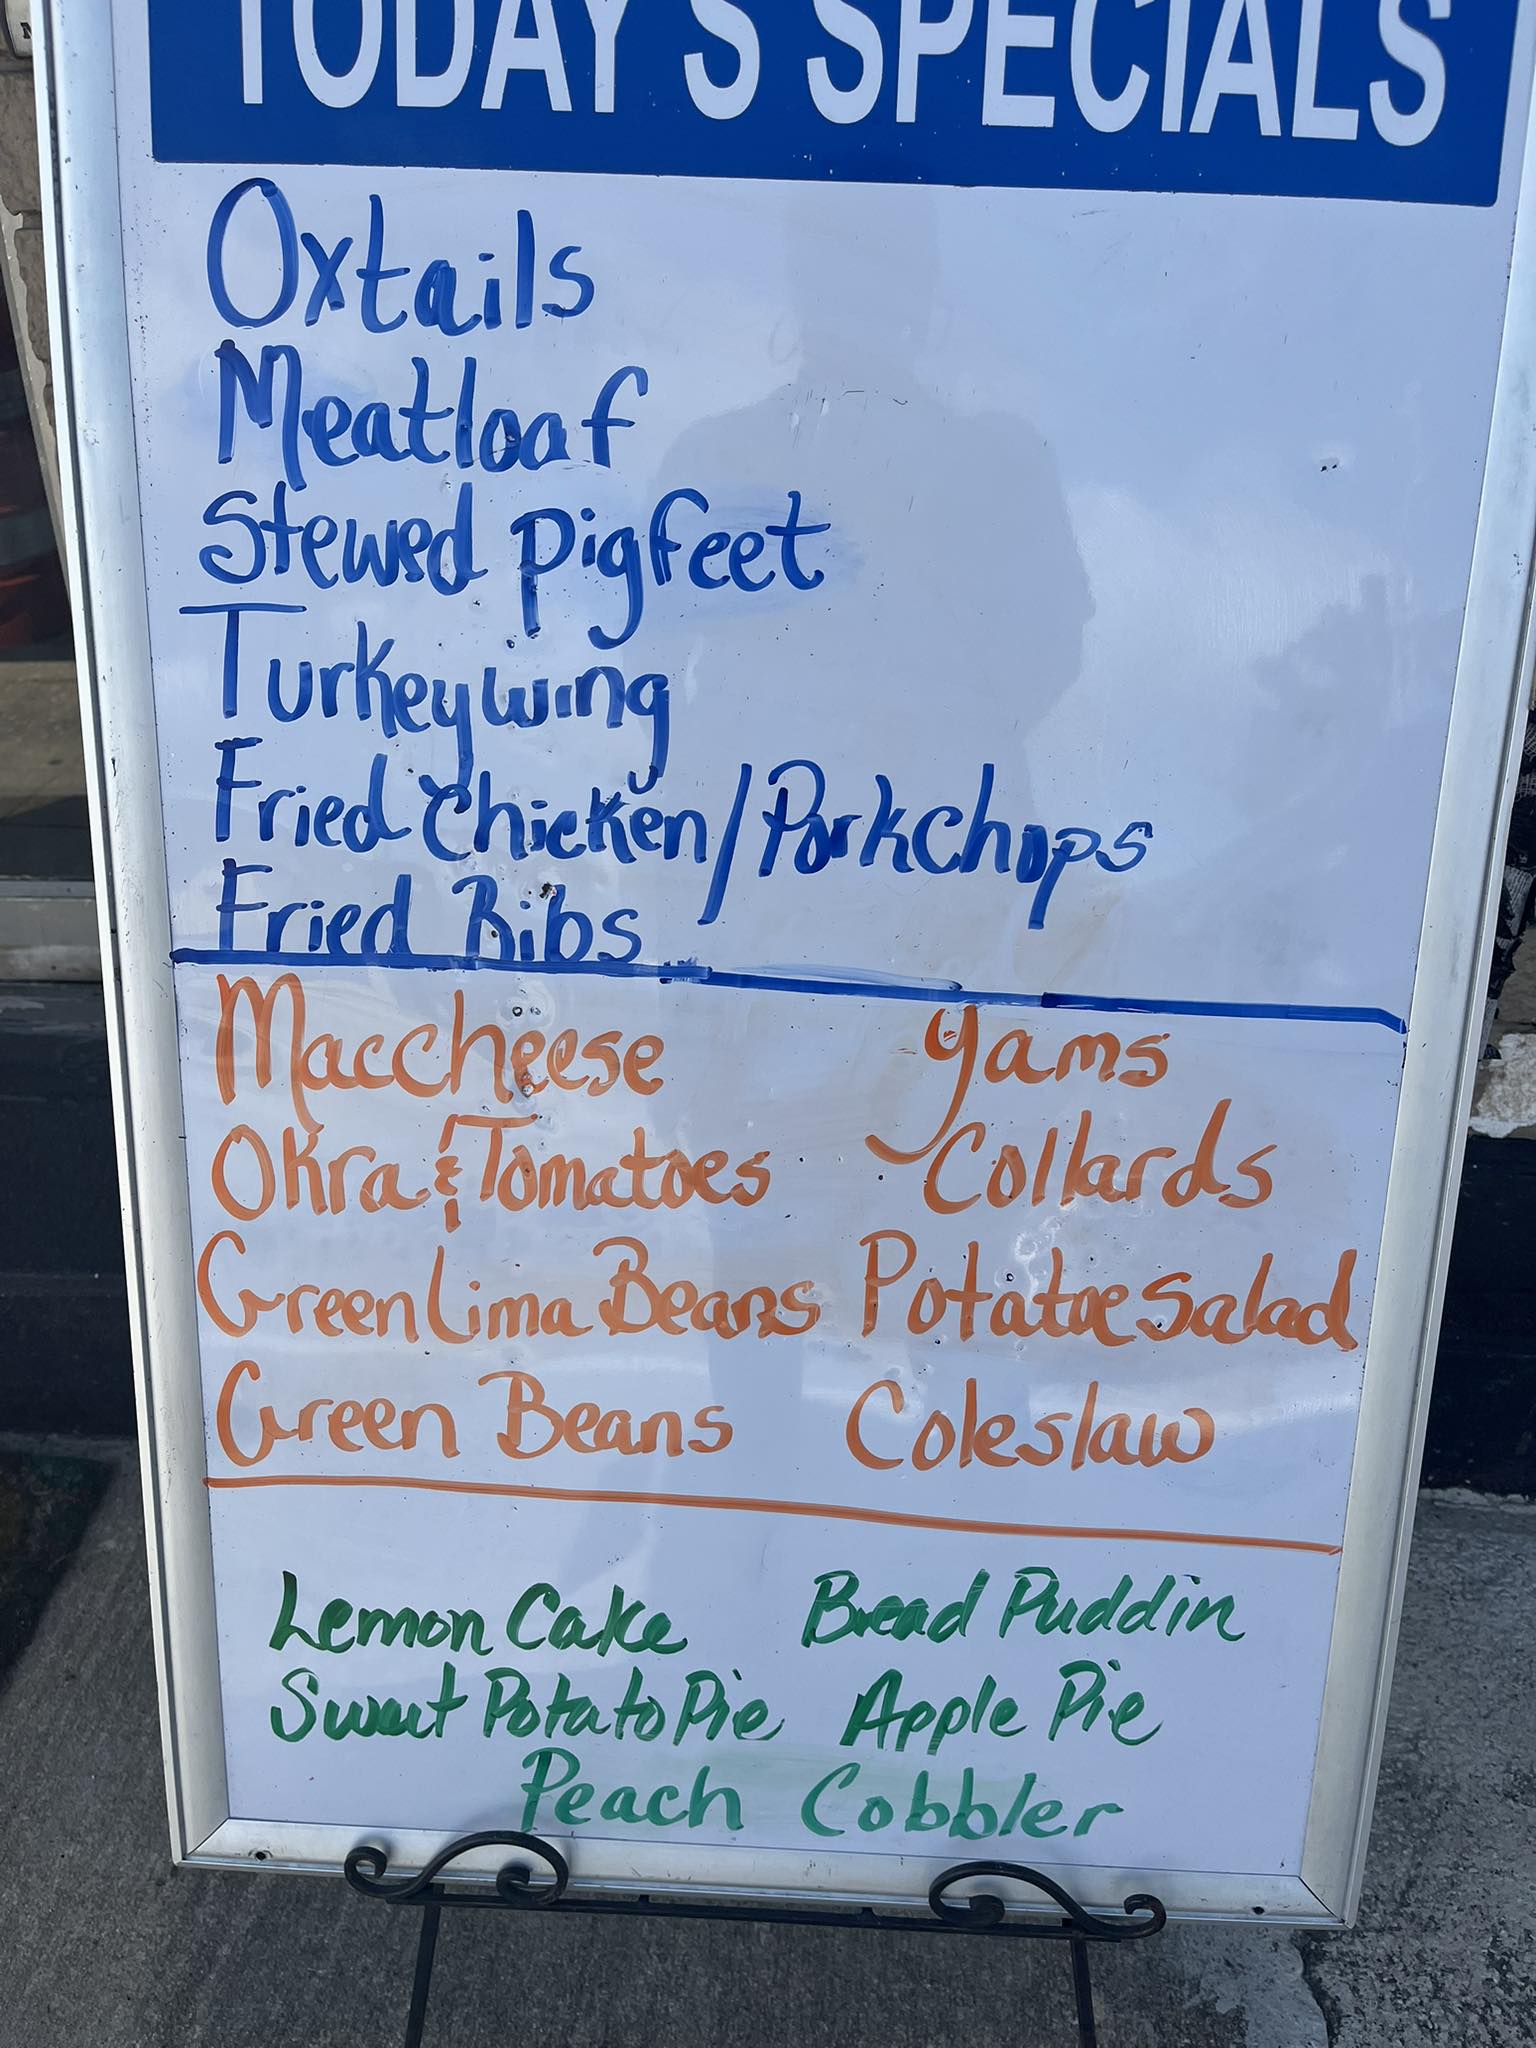 TODAY'S SPECIALS
Oxtails
Meatloaf
Stewed pigfeet
Turkey wing
Fried Chicken/Porkchops
Fried Ribs
Maccheese Yams
Okra & Tomatoes Collards
Green Lima Beans Potatoe Salad
Green Beans Coleslaw
Lemon Cake Bread Puddin
Sweet Potato Pie Apple Pie
Peach Cobbler